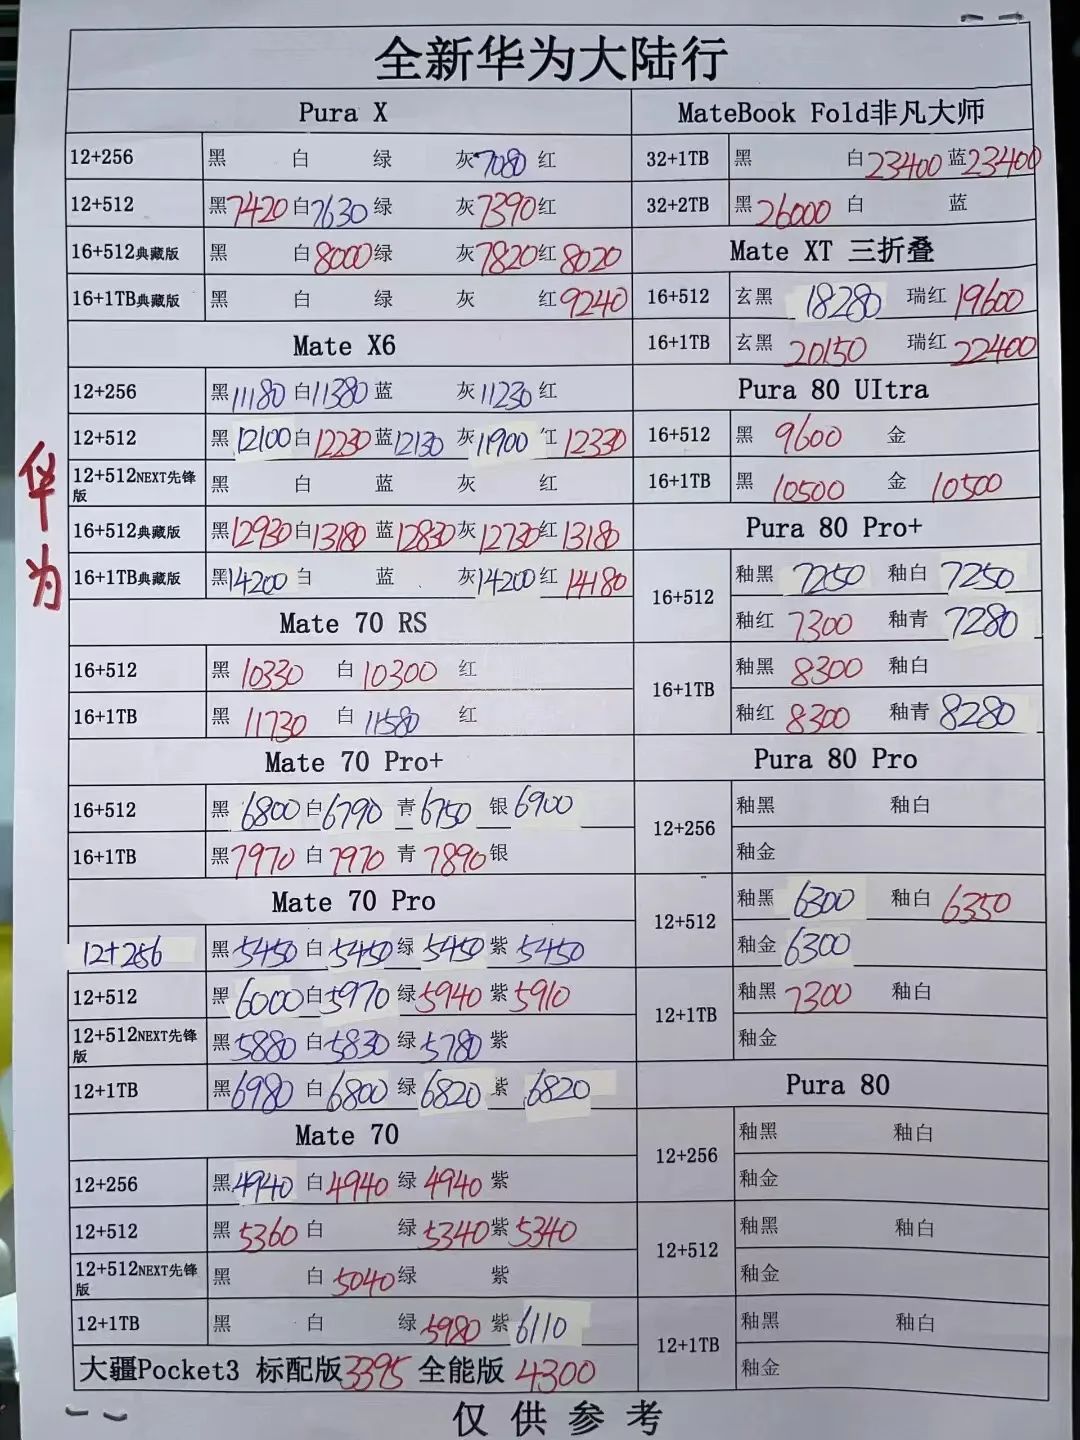 全新华为大陆行
Pura X
12+256 黑 白 绿 灰7080 红
12+512 黑7420 白7630 绿 灰7390 红
16+512典藏版 黑 白8000 绿 灰7820 红8020
16+1TB典藏版 黑 白 绿 灰 红9240
Mate X6
12+256 黑11180 白11380 蓝 灰11230 红
12+512 黑12100 白12230 蓝12130 灰11900 红12330
12+512NEXT先锋版 黑 白 蓝 灰 红
16+512典藏版 黑12930 白13180 蓝12830 灰12730 红13180
16+1TB典藏版 黑14200 白 蓝 灰14200 红14180
Mate 70 RS
16+512 黑 10330 白 10300 红
16+1TB 黑 11730 白 11580 红
Mate 70 Pro+
16+512 黑 6800 白6790 青6750 银6900
16+1TB 黑7970 白7970 青7890 银
Mate 70 Pro
12+256 黑5450 白5450 绿5450 紫5450
12+512 黑6000 白5970 绿5940 紫5910
12+512NEXT先锋版 黑5880 白5830 绿5780 紫
12+1TB 黑6980 白6800 绿6820 紫6820
Mate 70
12+256 黑4940 白4940 绿4940 紫
12+512 黑5360 白 绿5340 紫5340
12+512NEXT先锋版 黑 白5040 绿 紫
12+1TB 黑 白 绿5980 紫6110
大疆Pocket3 标配版3395 全能版 4300
MateBook Fold非凡大师
32+1TB 黑 白23400 蓝23400
32+2TB 黑26000 白 蓝
Mate XT 三折叠
16+512 玄黑 18280 瑞红19600
16+1TB 玄黑 20150 瑞红22400
Pura 80 UItra
16+512 黑 9600 金
16+1TB 黑 10500 金 10500
Pura 80 Pro+
16+512 釉黑 7250 釉白7250
釉红 7300 釉青 7280
16+1TB 釉黑 8300 釉白
釉红 8300 釉青 8280
Pura 80 Pro
12+256 釉黑 釉白
釉金
12+512 釉黑 6300 釉白 6350
釉金 6300
12+1TB 釉黑 7300 釉白
釉金
Pura 80
12+256 釉黑 釉白
釉金
12+512 釉黑 釉白
釉金
12+1TB 釉黑 釉白
釉金
仅供参考
华为